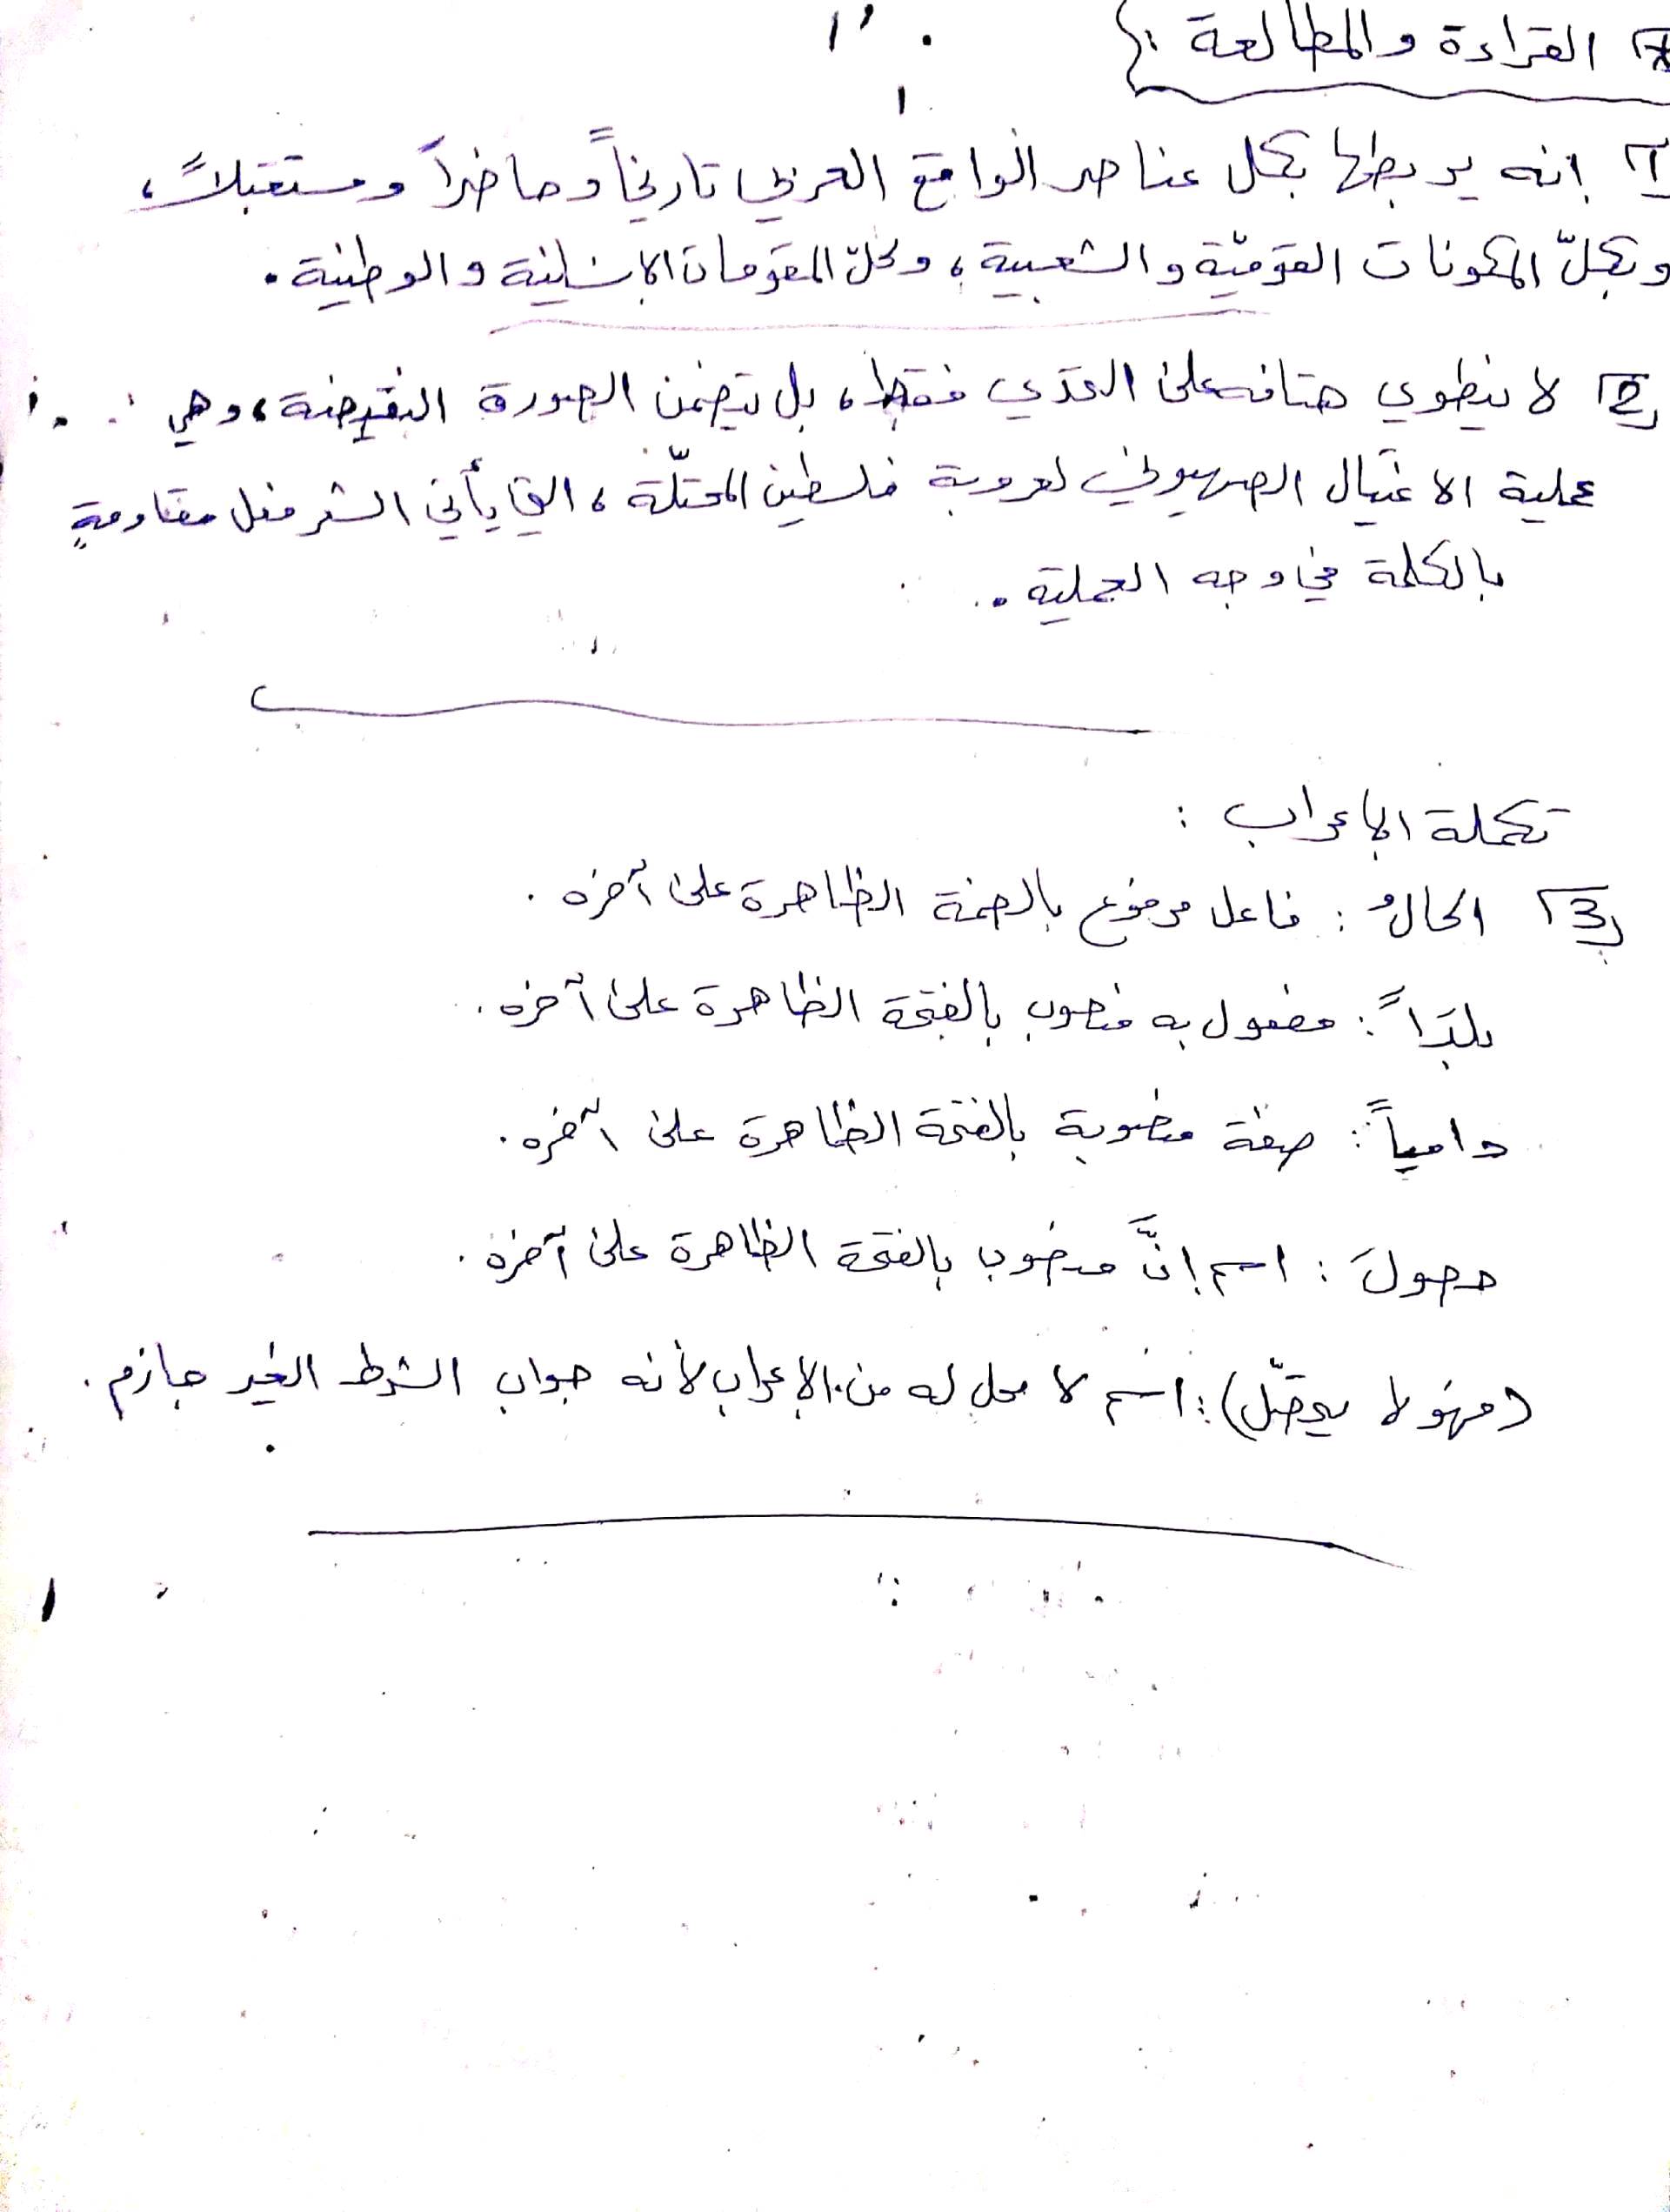 القراءة والمطالعة :
1 إنه يربطها بكل عناصر الواقع العربي تاريخاً وحاضراً ومستقبلاً،
وبكلّ المكونات القوميّة والشعبية، وكلّ المقومات الإنسانية والوطنية.
2 لا ينطوي هتافه على التحدّي فقط، بل يتضمن الصورة النقيضة، وهي
عملية الاغتيال الصهيوني لعروبة فلسطين المحتلّة، التي يأتي الشعر فعل مقاومةٍ
بالكلمة في وجه العملية.
تكملة الإعراب :
3 الحالُ : فاعل مرفوع بالضمة الظاهرة على آخره .
بلداً : مفعول به منصوب بالفتحة الظاهرة على آخره .
دامياً : صفة منصوبة بالفتحة الظاهرة على آخره .
حصولَ : اسم إنَّ منصوب بالفتحة الظاهرة على آخره .
(فهو لا يعوّل) : اسم لا محل له من الإعراب لأنه جواب الشرط الغير جازم .